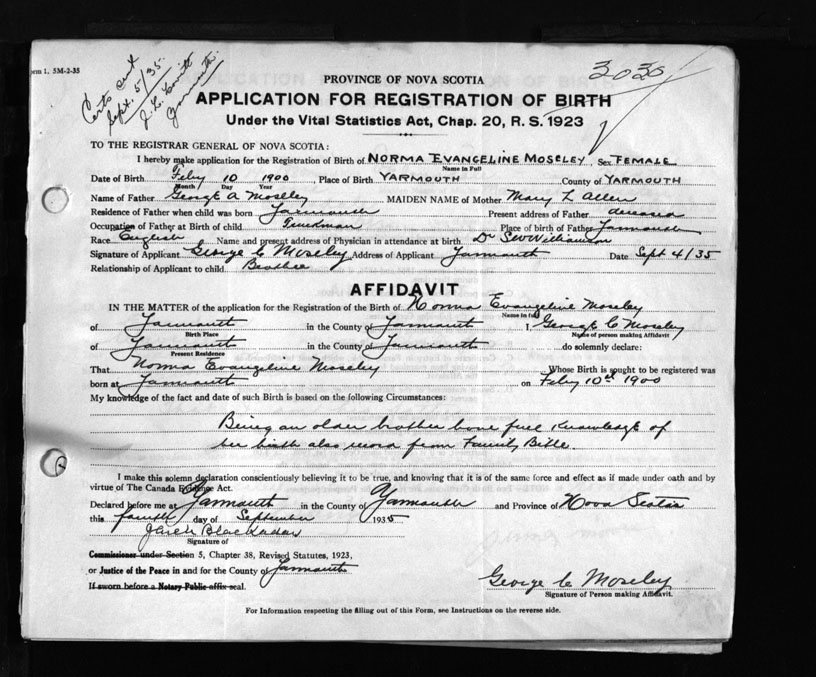 orm 1. 5M-2-35
Certs sent
Sept. 5/35.
Yarmouth.
3030
PROVINCE OF NOVA SCOTIA
APPLICATION FOR REGISTRATION OF BIRTH
Under the Vital Statistics Act, Chap. 20, R. S. 1923
TO THE REGISTRAR GENERAL OF NOVA SCOTIA:
I hereby make application for the Registration of Birth of NORMA EVANGELINE MOSELEY, Sex FEMALE
Name in Full
Date of Birth Feby 10 1900 Place of Birth YARMOUTH County of YARMOUTH
Month Day Year
Name of Father George A Moseley MAIDEN NAME of Mother Mary L Allen
Residence of Father when child was born Yarmouth Present address of Father deceased
Occupation of Father at Birth of child Truckman Place of Birth of Father Yarmouth
Race English Name and present address of Physician in attendance at birth Dr Williamson
Signature of Applicant George C Moseley Address of Applicant Yarmouth Date Sept 4/35
Relationship of Applicant to child Brother
AFFIDAVIT
IN THE MATTER of the application for the Registration of the Birth of Norma Evangeline Moseley
Name in full
of Yarmouth in the County of Yarmouth I, George C Moseley
Birth Place Name of person making Affidavit
of Yarmouth in the County of Yarmouth do solemnly declare:
Present Residence
That Norma Evangeline Moseley Whose Birth is sought to be registered was
born at Yarmouth on Feby 10th 1900
My knowledge of the fact and date of such Birth is based on the following Circumstances:
Being an older brother have full Knowledge of
her birth also record from Family Bible.
I make this solemn declaration conscientiously believing it to be true, and knowing that it is of the same force and effect as if made under oath and by
virtue of The Canada Evidence Act.
Declared before me at Yarmouth in the County of Yarmouth and Province of Nova Scotia
this fourth day of September 1935
Blackadar
Signature of
Commissioner under Section 5, Chapter 38, Revised Statutes, 1923,
or Justice of the Peace in and for the County of Yarmouth
If sworn before a Notary Public affix seal.
George C Moseley
Signature of Person making Affidavit.
For Information respecting the filling out of this Form, see Instructions on the reverse side.